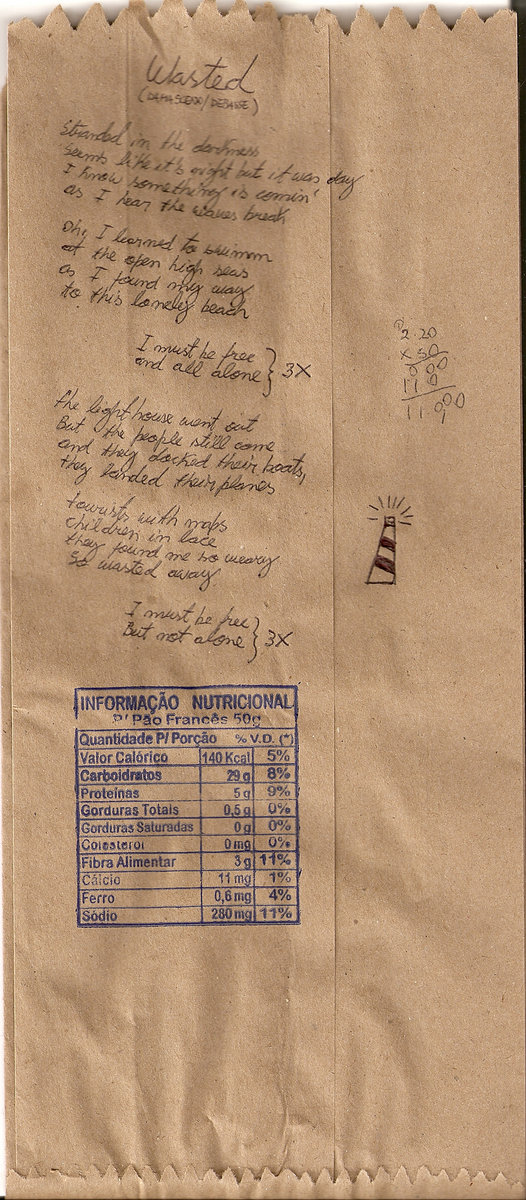 Wasted
(DAMASCENO/DEBASSE)
Stranded in the darkness
seems like it's night but it was day
I know something is comin'
as I hear the waves break
Oh, I learned to swimm
at the open high seas
as I found my way
to this lonely beach
I must be free
and all alone } 3X
the lighthouse went out
But the people still come
and they docked their boats,
they landed their planes
tourists with maps
children in lace
they found me so weary
so wasted away
I must be free
But not alone } 3X
2.20
x 50
000
110
11,000
INFORMAÇÃO NUTRICIONAL
P/ Pão Francês 50g
Quantidade P/ Porção % V.D. (*)
Valor Calórico 140 Kcal 5%
Carboidratos 29 g 8%
Proteínas 5 g 9%
Gorduras Totais 0,5 g 0%
Gorduras Saturadas 0 g 0%
Colesterol 0 mg 0%
Fibra Alimentar 3 g 11%
Cálcio 11 mg 1%
Ferro 0,6 mg 4%
Sódio 280 mg 11%